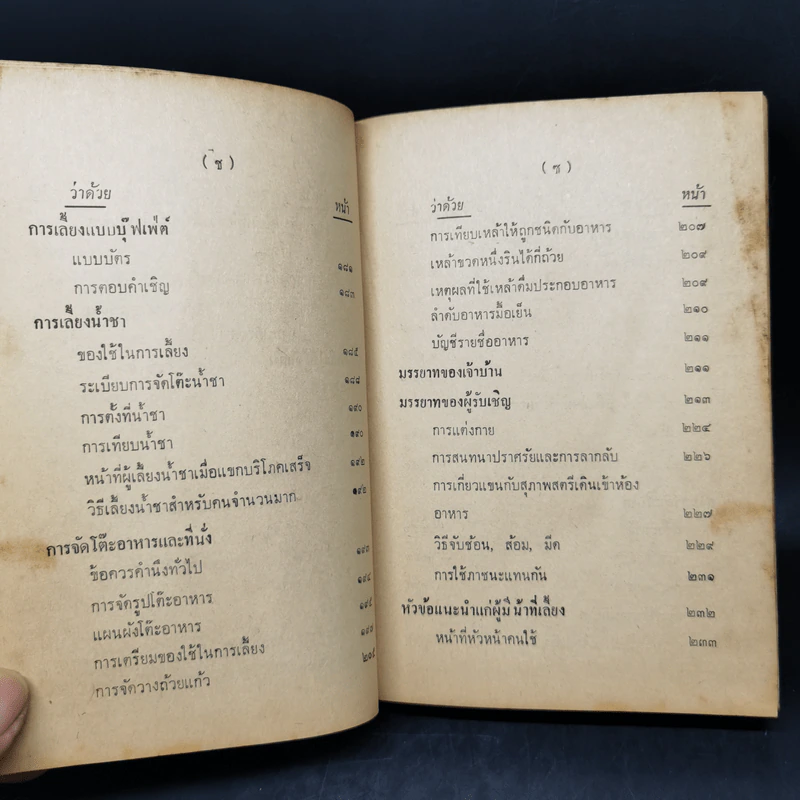 ( ช )
ว่าด้วย หน้า
การเลี้ยงแบบบุ๊ฟเฟ่ต์
แบบบัตร ๑๘๑
การตอบคำเชิญ ๑๘๓
การเลี้ยงน้ำชา
ของใช้ในการเลี้ยง ๑๘๕
ระเบียบการจัดโต๊ะน้ำชา ๑๘๘
การตั้งที่น้ำชา ๑๙๐
การเทียบน้ำชา ๑๙๐
หน้าที่ผู้เลี้ยงน้ำชาเมื่อแขกบริโภคเสร็จ ๑๙๒
วิธีเลี้ยงน้ำชาสำหรับคนจำนวนมาก ๑๙๒
การจัดโต๊ะอาหารและที่นั่ง
ข้อควรคำนึงทั่วไป ๑๙๓
การจัดรูปโต๊ะอาหาร ๑๙๔
แผนผังโต๊ะอาหาร ๑๙๕
การเตรียมของใช้ในการเลี้ยง ๑๙๗
การจัดวางถ้วยแก้ว ๒๐๕
( ซ )
ว่าด้วย หน้า
การเทียบเหล้าให้ถูกชนิดกับอาหาร ๒๐๗
เหล้าขวดหนึ่งรินได้กี่ถ้วย ๒๐๙
เหตุผลที่ใช้เหล้าดื่มประกอบอาหาร ๒๐๙
ลำดับอาหารมื้อเย็น ๒๑๐
บัญชีรายชื่ออาหาร ๒๑๑
มรรยาทของเจ้าบ้าน ๒๑๑
มรรยาทของผู้รับเชิญ ๒๑๓
การแต่งกาย ๒๒๔
การสนทนาปราศรัยและการลากลับ ๒๒๖
การเกี่ยวแขนกับสุภาพสตรีเดินเข้าห้อง
อาหาร ๒๒๗
วิธีจับช้อน, ส้อม, มีด ๒๒๙
การใช้ภาชนะแทนกัน ๒๓๑
หัวข้อแนะนำแก่ผู้มีน้าที่เลี้ยง ๒๓๒
หน้าที่หัวหน้าคนใช้ ๒๓๓